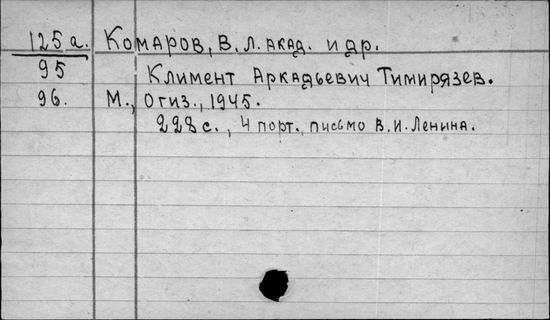 125а. Комаров, В. Л. акад. и др.
95 Климент Аркадьевич Тимирязев.
96. М., Огиз., 1945.
228 с., 4 порт., письмо В. И. Ленина.